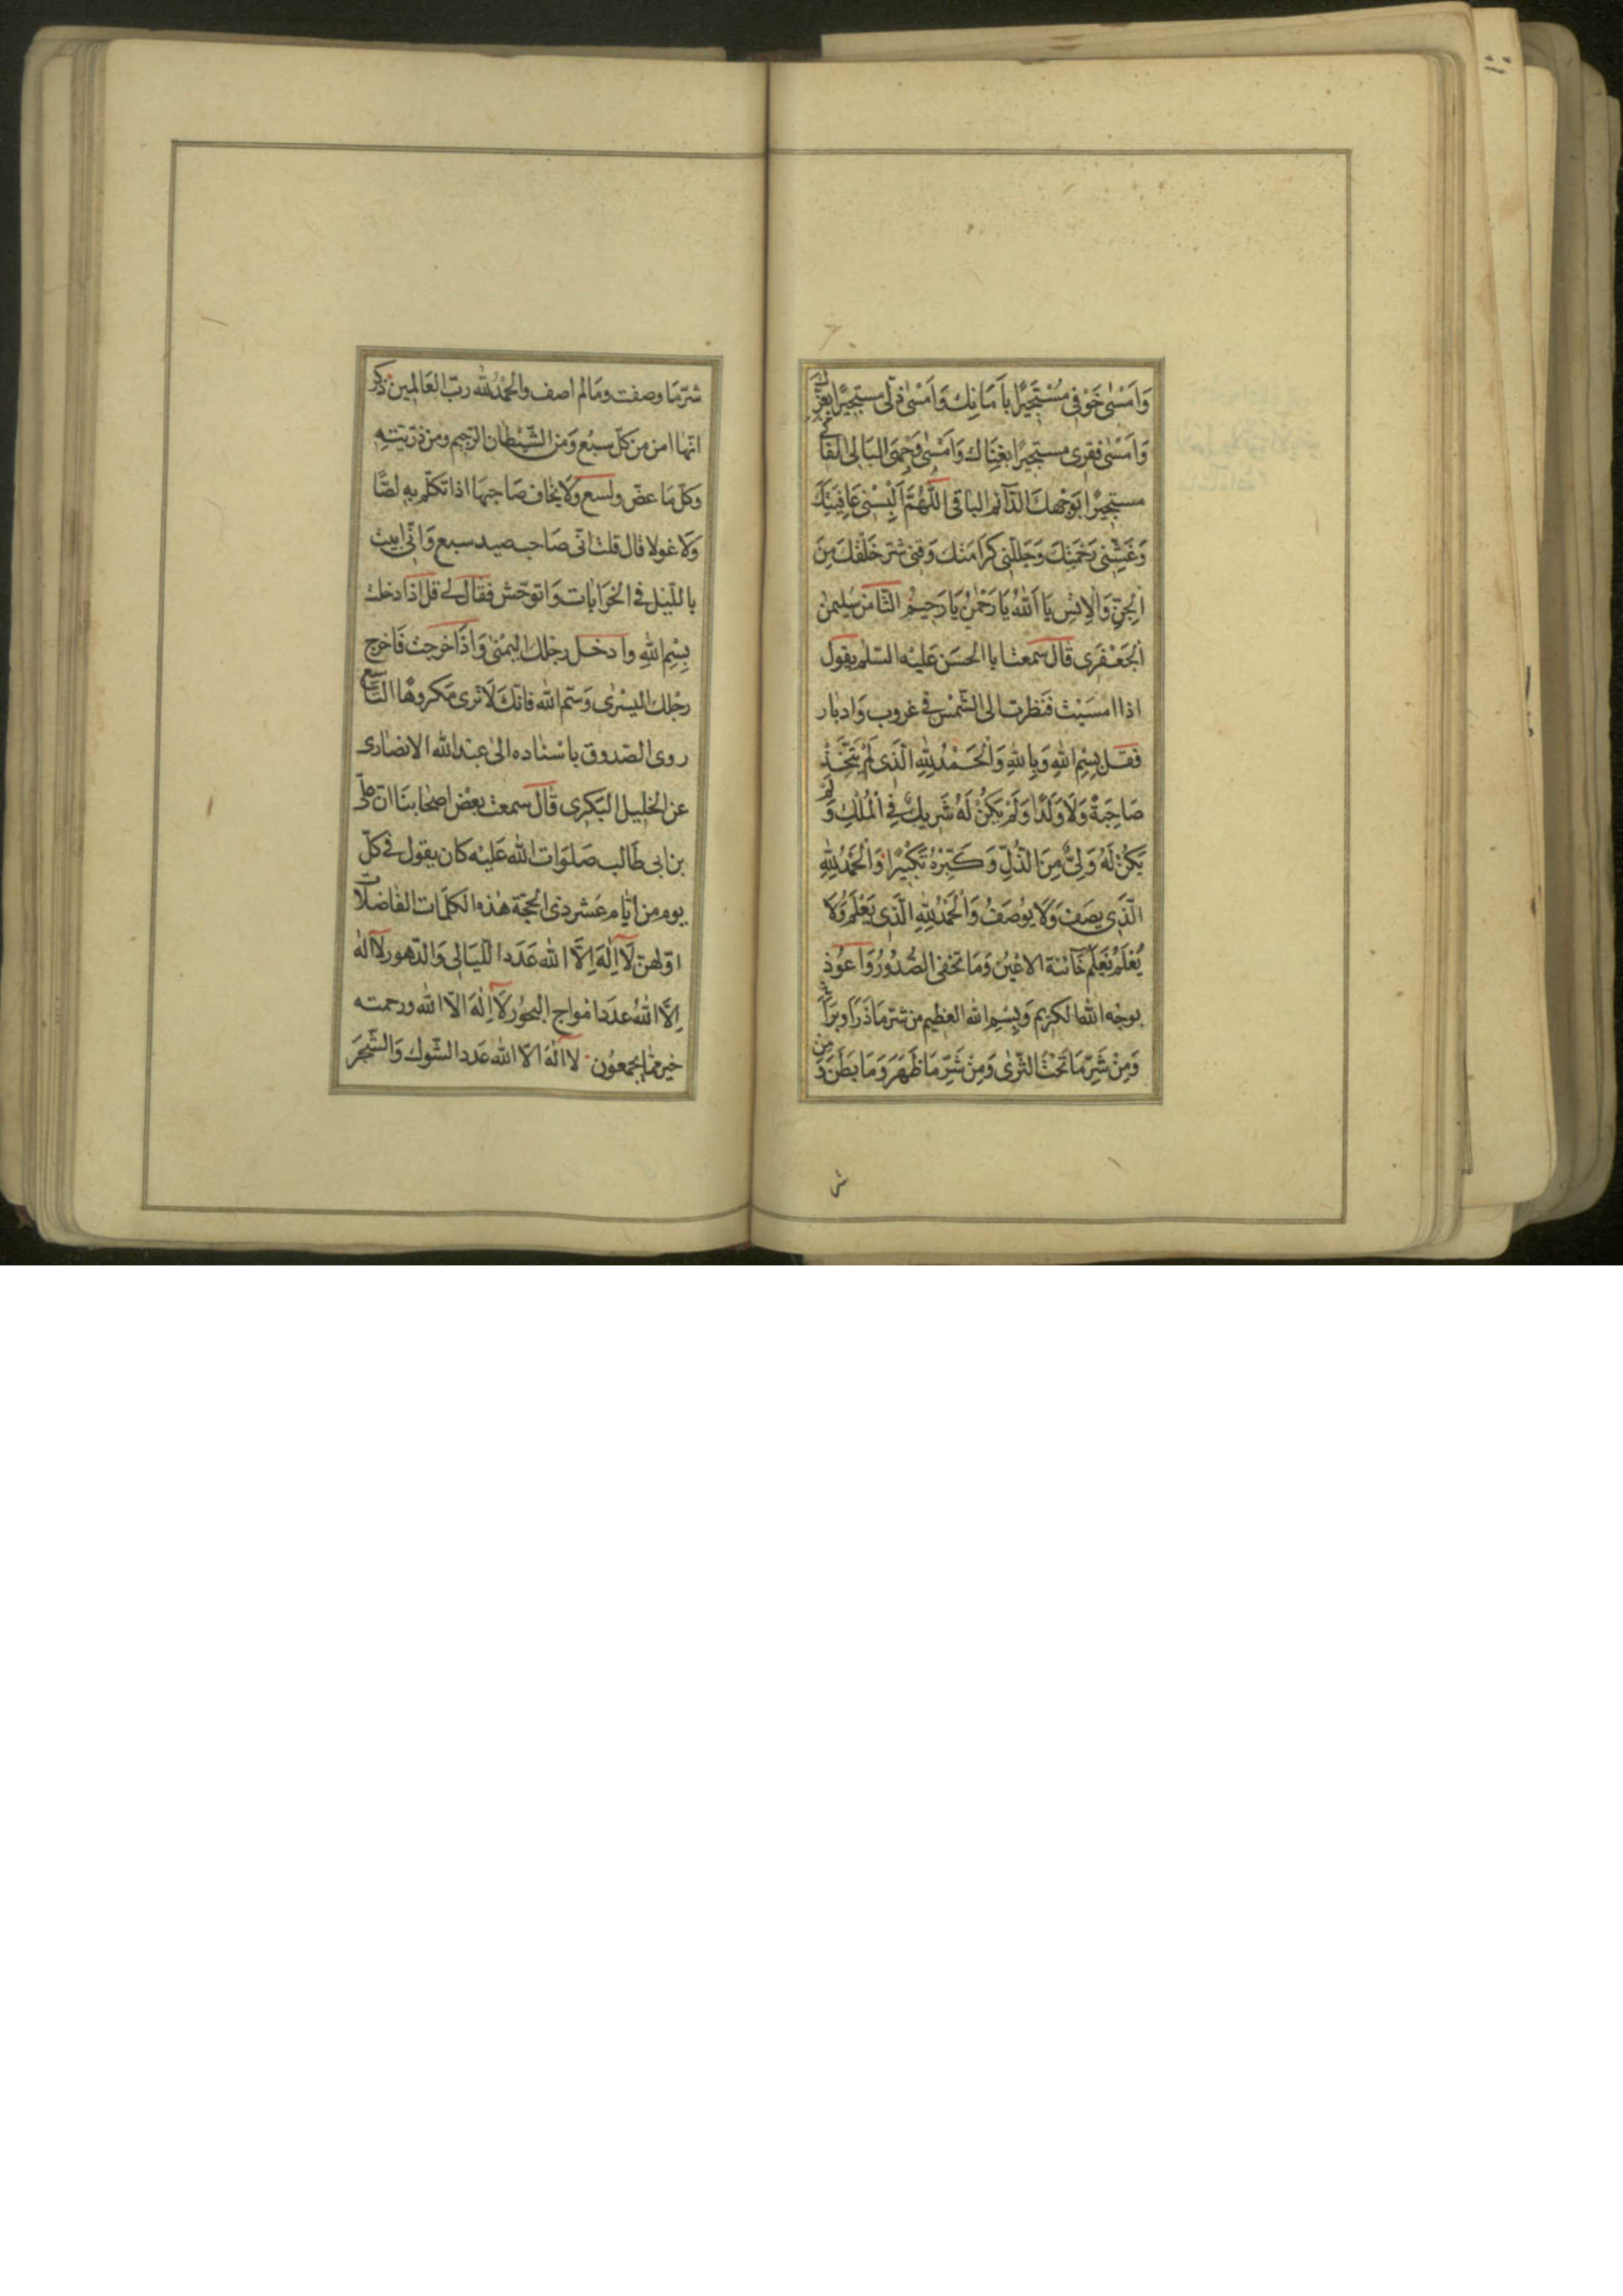 وَاَمْسٰى خَوْفى مُسْتَجيرًا بِاَمَانِكَ وَاَمْسٰى ذلّى مستجيرًا بعِزِّكَ
وَاَمْسٰى فقرى مستجيرًا بغِنَاكَ وَاَمْسٰى وَجْهِىَ البَالى الفَانى
مستجيرًا بَوجْهِكَ الدّآئم الباقى اَللّهُمَّ اَلْبِسْنى عَافِيَتَكَ
وَغَشِّنى رَحْمَتِكَ وَجَلِّلْنى كَرَامَتَكَ وَقِنى شَرَّ خَلْقِكَ مِنَ
الْجِنِّ وَالْاِنْسِ يَا اَللهُ يَا رَحْمٰنُ يَا رَحيمُ الثامن سليمٰن
الْجَعْفَرى قال سمعت ابا الحسَن عَليْه السّلم يقول
اذا امسَيْتَ فنَظرتَ الى الشّمْسِ فى غروب وَادبار
فقل بِسْمِ اللهِ وَبِاللهِ وَالْحَمْدُ لِلّهِ الَّذى لَمْ يَتَّخِذْ
صَاحِبَةً وَلَا وَلَدًا وَلَمْ يَكُنْ لَهُ شَريكٌ فِى الْمُلْكِ وَلَمْ
يَكُنْ لَهُ وَلِىٌّ مِنَ الذُّلِّ وَكَبِّرْهُ تَكْبيرًا وَالْحَمْدُ لِلّهِ
الَّذى يَصِفُ وَلَا يُوصَفُ وَالْحَمْدُ لِلّهِ الَّذى يَعْلَمُ وَلَا
يُعْلَمُ يَعْلَمُ خَآئنة الاعْيُنِ وَمَا تخفى الصُّدُورُ وَاَعُوذ
بوجْه الله الكريم وَبِسْمِ الله العظيم من شرّ مَا ذَرَاَ وبَرَاَ
وَمِنْ شَرِّ مَا تَحْتَ الثّرٰى وَمِنْ شَرِّ مَا ظَهَرَ وَمَا بَطَنَ وَمِن
شر
شرّ مَا وصفت ومَا لم اصف والحمْدُ لله ربّ العَالمين ذكر
انّهَا امن من كلّ سبُع وَمن الشّيْطان الرّجيم ومن ذرّيّتِهِ
وَكلّ مَا عضّ ولسع وَلَا يخاف صَاحبهَا اذا تكلّم به لصًّا
وَلَا غولا قال قلت انّى صَاحب صيد سبع وَانّى ابيت
باللّيْل فى الخَرَابَات وَاتوحّش فقال لى قل اذا دخلت
بِسْمِ اللهِ وادخل رجْلك اليمْنىٰ وَاذَا خرجت فَاخرج
رجْلك اليسْرى وَسَمّ الله فانّكَ لَا ترى مَكروهًا التاسع
روى الصّدوق باسْنَاده الىٰ عبْد الله الانصارى
عن الخليل البَكرى قال سمعت بعْض اصحَابنَا انّ علىّ
بن ابى طَالب صَلَوَات الله عَليْه كان يقول فى كلّ
يوم من ايّام عَشر ذى الحجّة هٰذه الكلمَات الفَاضلَات
اوّلهنّ لَآ اِلٰهَ اِلَّا الله عَدَد اللّيَالى وَالدّهور لَآ اله
اِلَّا اللهُ عدَد امْواج البحُور لَآ اِلٰهَ الّا الله ورحمته
خير ممّا يجمعُون لا الٰهَ الّا الله عَدد الشّوك وَالشّجَر